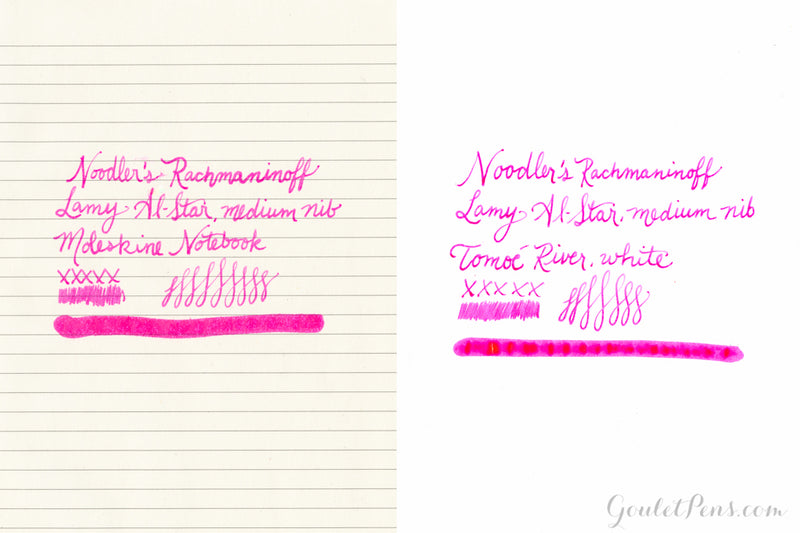 Noodler's Rachmaninoff
Lamy Al-Star, medium nib
Moleskine Notebook
xxxxx
Noodler's Rachmaninoff
Lamy Al-Star, medium nib
Tomoé River, white
xxxxx
GouletPens.com